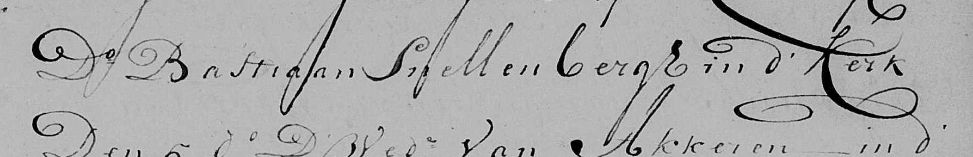 Do Bastiaan Snellenbergh in d' Kerk
Den 5 do D Wede Van Akkeren in d'